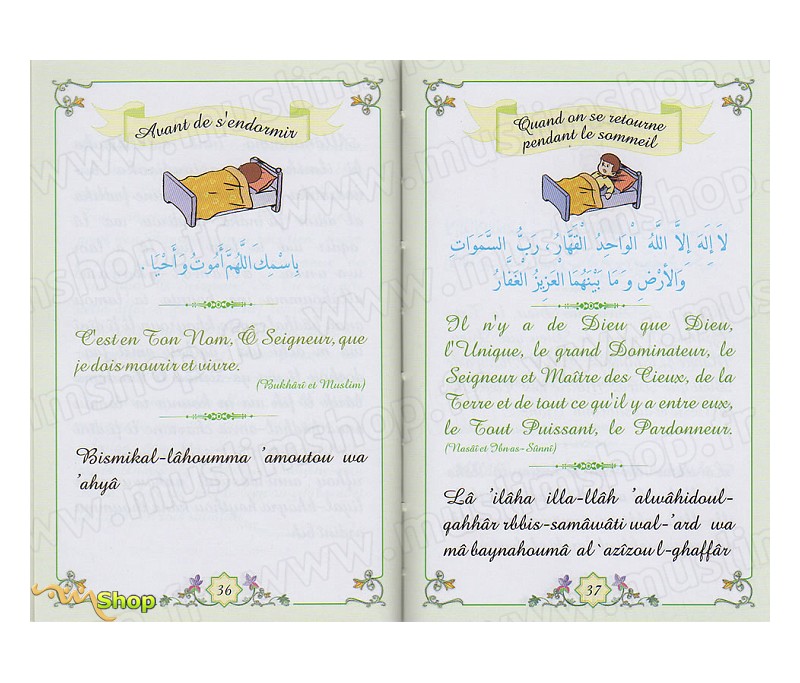 Avant de s'endormir
بِاسْمِكَ اللَّهُمَّ أَمُوتُ وَأَحْيَا .
C'est en Ton Nom, Ô Seigneur, que
je dois mourir et vivre.
(Bukhârî et Muslim)
Bismikal-lâhoumma 'amoutou wa
'ahyâ
36
Shop
Quand on se retourne
pendant le sommeil
لاَ إِلَهَ إِلاَّ اللَّهُ الْوَاحِدُ الْقَهَّارُ، رَبُّ السَّمَوَاتِ
وَالْأَرْضِ وَ مَا بَيْنَهُمَا الْعَزِيزُ الْغَفَّارُ
Il n'y a de Dieu que Dieu,
l'Unique, le grand Dominateur, le
Seigneur et Maître des Cieux, de la
Terre et de tout ce qu'il y a entre eux,
le Tout Puissant, le Pardonneur.
(Nasâî et Ibn as-Sunnî)
Lâ 'ilâha illa-llâh 'alwâhidoul-
qahhâr rbbis-samâwâti wal-'ard wa
mâ baynahoumâ al\`azîzoul-ghaffâr
37
www.muslimshop.fr